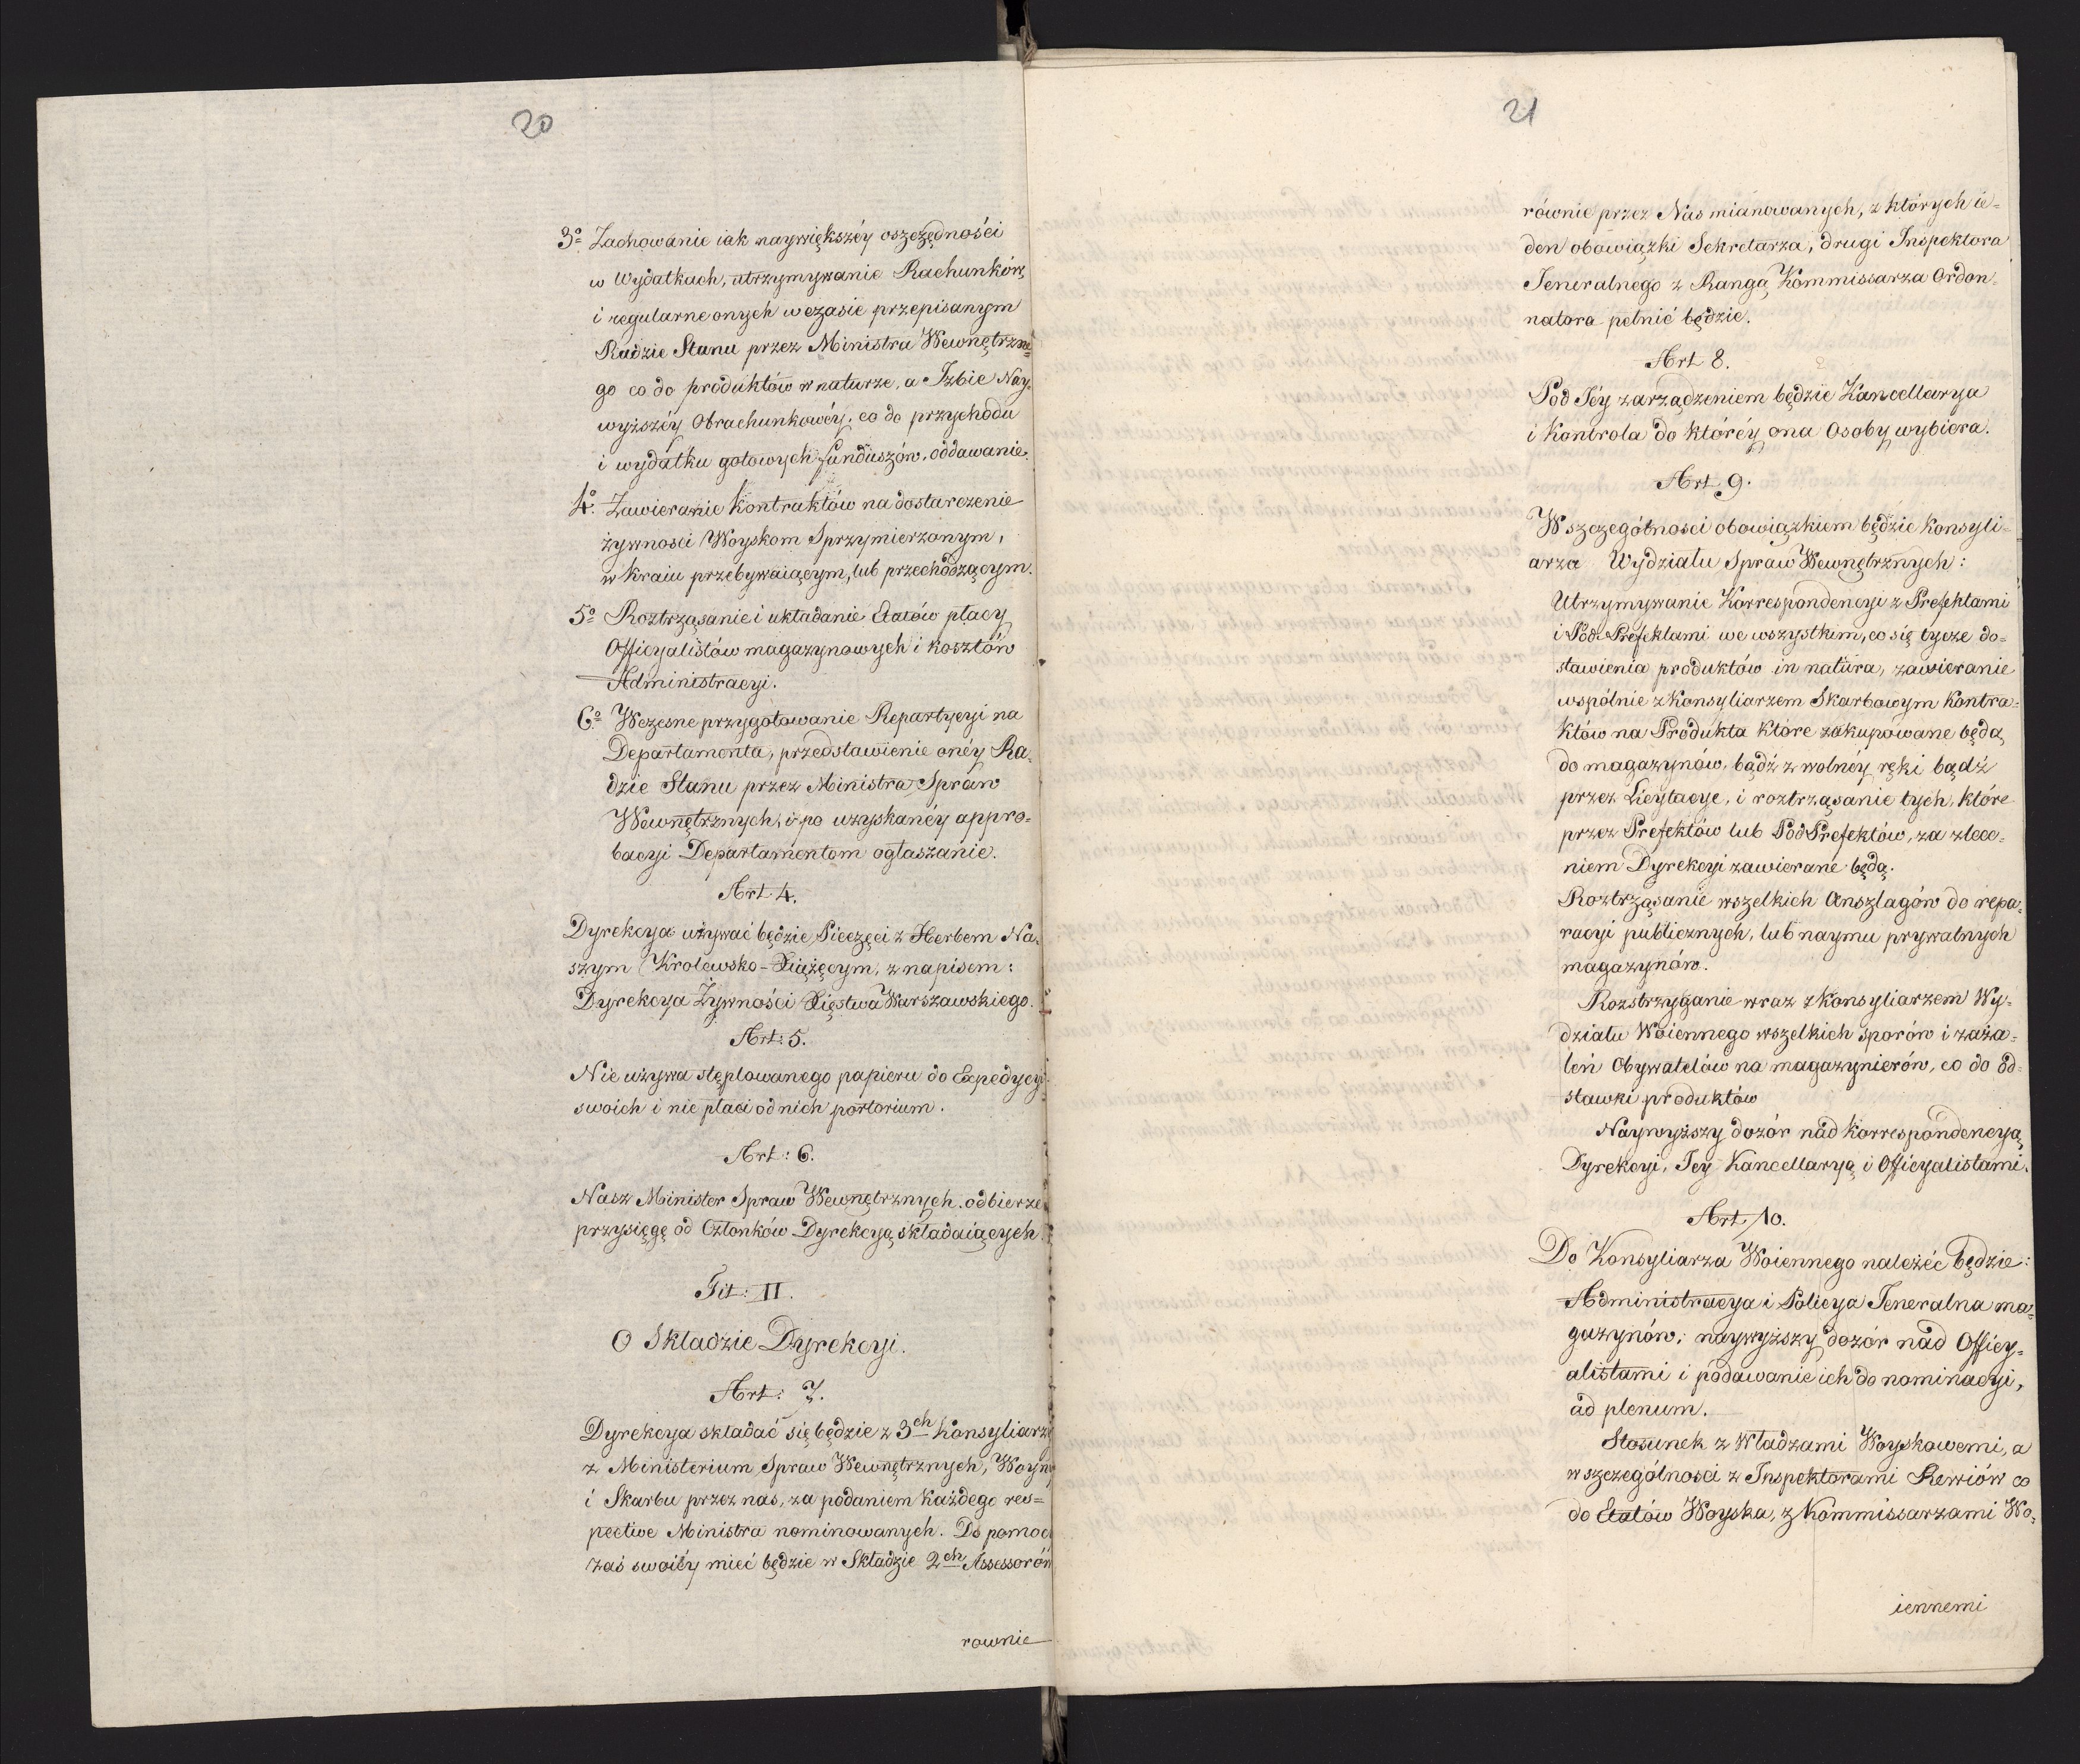 20
3º Zachowanie iak naywiększéy oszczędności
w Wydatkach, utrzymywanie Rachunków,
i regularne onych w czasie przepisanym
Radzie Stanu przez Ministra Wewnętrzne=
go co do produktów w naturze, a Izbie Nay-
wyższéy Obrachunkowéy, co do przychodu
i wydatku gotowych funduszów, oddawanie.
4º Zawieranie kontraktów na dostarczenie
żywnosci Woyskom Sprzymierzonym,
w kraiu przebywaiącym, lub przechodzącym.
5º Roztrząsanie i układanie Etatów płacy
Officyalistów magazynowych i kosztów
Administracyi.
6º Wczesne przygotowanie Repartycyi na
Departamenta, przedstawienie onéy Ra-
dzie Stanu przez Ministra Spraw
Wewnętrznych, i po uzyskanéy appro=
bacyi Departamentom ogłaszanie.
Art 4.
Dyrekcya używać będzie Pieczęci z Herbem Na-
szym Krolewsko-Xiążęcym, z napisem:
Dyrekcya Żywności Xięstwa Warszawskiego.
Art: 5.
Nie używa stęplowanego papieru do Expedycyi
swoich i nie płaci od nich portorium.
Art: 6.
Nasz Minister Spraw Wewnętrznych odbierze
przysięgę od Członków Dyrekcyą składaiących.
Tit: II.
O Składzie Dyrekcyi.
Art: 7.
Dyrekcya składać się będzie z 3ch Konsyliarzy
z Ministerium Spraw Wewnętrznych, Woyny
i Skarbu przez nas, za podaniem każdego res=
pective Ministra nominowanych. Do pomocy
zaś swoiéy mieć będzie w Składzie 2ch Assessorów
rownie
21
równie przez Nas mianowanych, z których ie-
den obowiązki Sekretarza, drugi Inspektora
Jeneralnego z Rangą Kommissarza Ordon-
natora pełnić będzie.
Art 8.
Pod Jéy zarządzeniem będzie Kancellarya
i Kontrola do któréy ona Osoby wybiera.
Art 9.
W szczególnosci obowiązkiem będzie Konsyli=
arza Wydziału Spraw Wewnętrznych:
Utrzymywanie Korrespondencyi z Prefektami
i Pod Prefektami we wszystkim, co się tycze do=
stawienia produktów in natura, zawieranie
wspólnie z Konsyliarzem Skarbowym Kontra=
któw na Produkta które zakupowane będą
do magazynów, bądź z wolnéy ręki bądź
przez Licytacye, i roztrząsanie tych, które
przez Prefektów lub Pod Prefektów, za zlece=
niem Dyrekcyi zawierane będą.
Roztrząsanie wszelkich Anszlagów do repa-
racyi publicznych, lub naymu prywatnych
magazynów.
Rozstrzyganie wraz z Konsyliarzem Wy-
działu Woiennego wszelkich sporów i zaża=
leń Obywatelów na magazynierów, co do od=
stawki produktów
Naywyższy dozór nad korrespondencyą
Dyrekcyi, Jey Kancellaryą i Officyalistami.
Art 10.
Do Konsyliarza Woiennego należéć będzie:
Administracya i Policya Jeneralna ma=
gazynów; naywyższy dozór nad Officy=
alistami i podawanie ich do nominacyi,
ad plenum.
Stosunek z Władzami Woyskowemi, a
w szczególnosci z Inspektorami Rewiów co
do Etatów Woyska, z Kommissarzami Wo-
iennemi